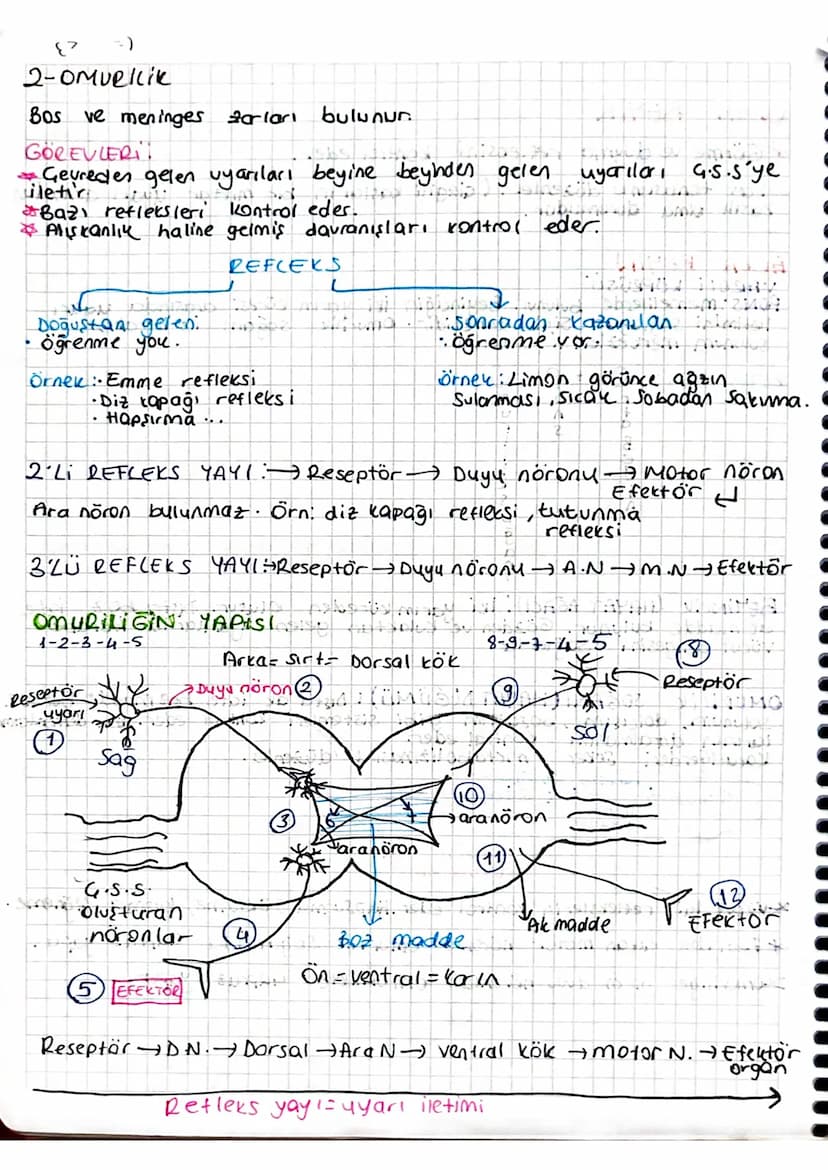 2-OMURİLİK
Bos ve meninges zarları bulunur.
GÖREVLERİ:
Çevreden gelen uyarıları beyine beyinden gelen uyarıları Ç.S.S'ye
iletir.
Bazı refleksleri kontrol eder.
Alışkanlık haline gelmiş davranışları kontrol eder.
REFLEKS
Doğuştan gelen: sonradan kazanılan
• öğrenme yok. • öğrenme var.
Örnek: • Emme refleksi örnek: Limon görünce ağzın
• Diz kapağı refleksi Sulanması, sıcak sobadan sakınma.
• Hapşırma ...
2'Li REFLEKS YAYI :→ Reseptör → Duyu nöronu → Motor nöron
Efektör ↵
Ara nöron bulunmaz. Örn: diz kapağı refleksi, tutunma
refleksi
3'LÜ REFLEKS YAYI:→Reseptör → Duyu nöronu → A.N → M.N → Efektör
OMURİLİĞİN YAPISI
1-2-3-4-5 8-9-7-4-5
Arka= Sırt= Dorsal kök
8
Reseptör
Reseptör
uyarı
1
Duyu nöron 2
9
Sağ
Sol
10
3 6 7
→ aranöron
aranöron
11
Ç.S.S.
oluşturan
nöronlar
4
12
Efektör
Ak madde
Boz madde
5 EFEKTÖR
Ön = ventral = Karın
Reseptör → D.N. → Dorsal → Ara N → ventral kök → motor N. → Efektör
organ
Refleks yayı= uyarı iletimi